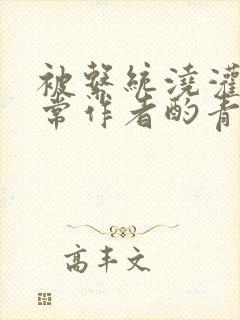 被系统浇灌
常作者的青
高丰文